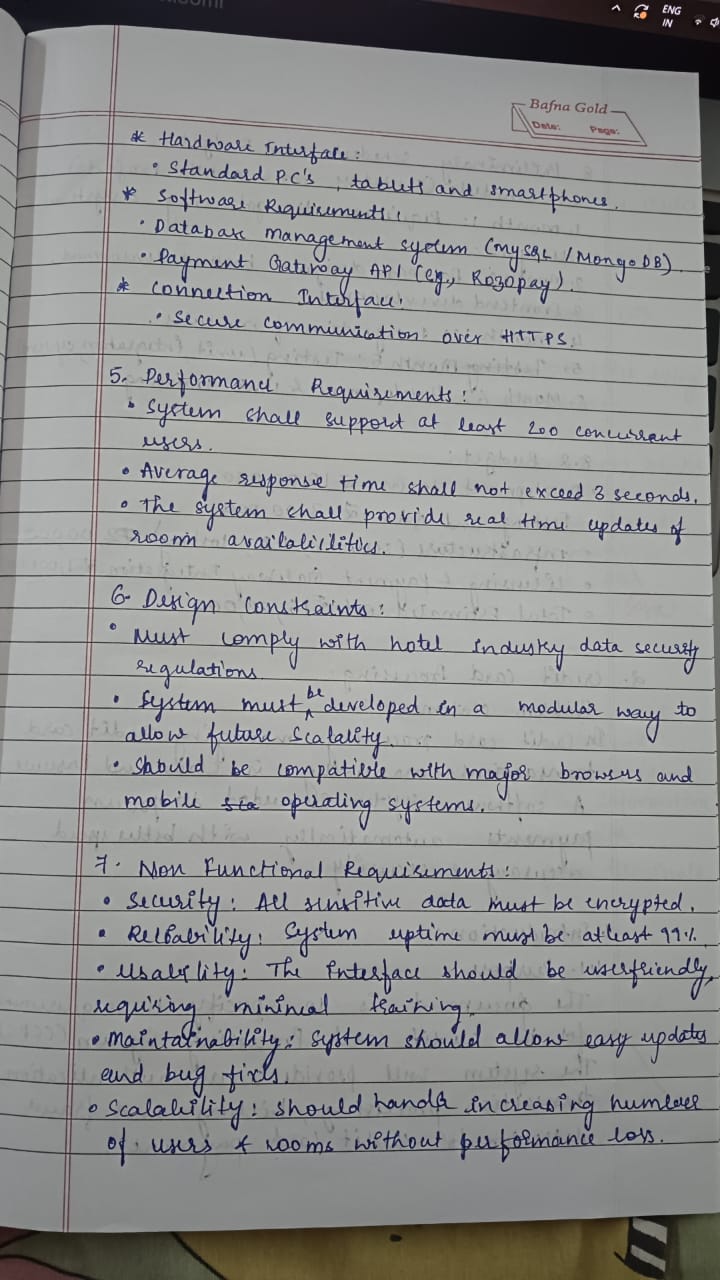 ENG
IN
Bafna Gold
Date: Page:
* Hardware Interface:
• Standard P.C's, tablets and smartphones.
* Software Requirements:
• Database management system (MySQL / MongoDB).
• Payment Gateway API (eg., Rozopay).
* Connection Interface:
• Secure communication over HTTPS.
5. Performance Requirements:
• System shall support at least 200 concurrant
users.
• Average response time shall not exceed 3 seconds.
• The system shall provide real time updates of
room availalicilities.
6. Design Constraints:
• Must comply with hotel industry data security
regulations
• System must be developed in a modular way to
allow future Scalality.
• Should be compatible with major browsers and
mobile operating systems.
7. Non Functional Requirements:
• Security: All sensitive data must be encrypted.
• Reliability: System uptime must be atleast 99%.
• Usability: The Interface should be userfriendly,
requiring minimal training.
• Maintainability: System should allow easy updates
and bug fixes.
• Scalability: Should handle increasing number
of users & rooms without performance loss.